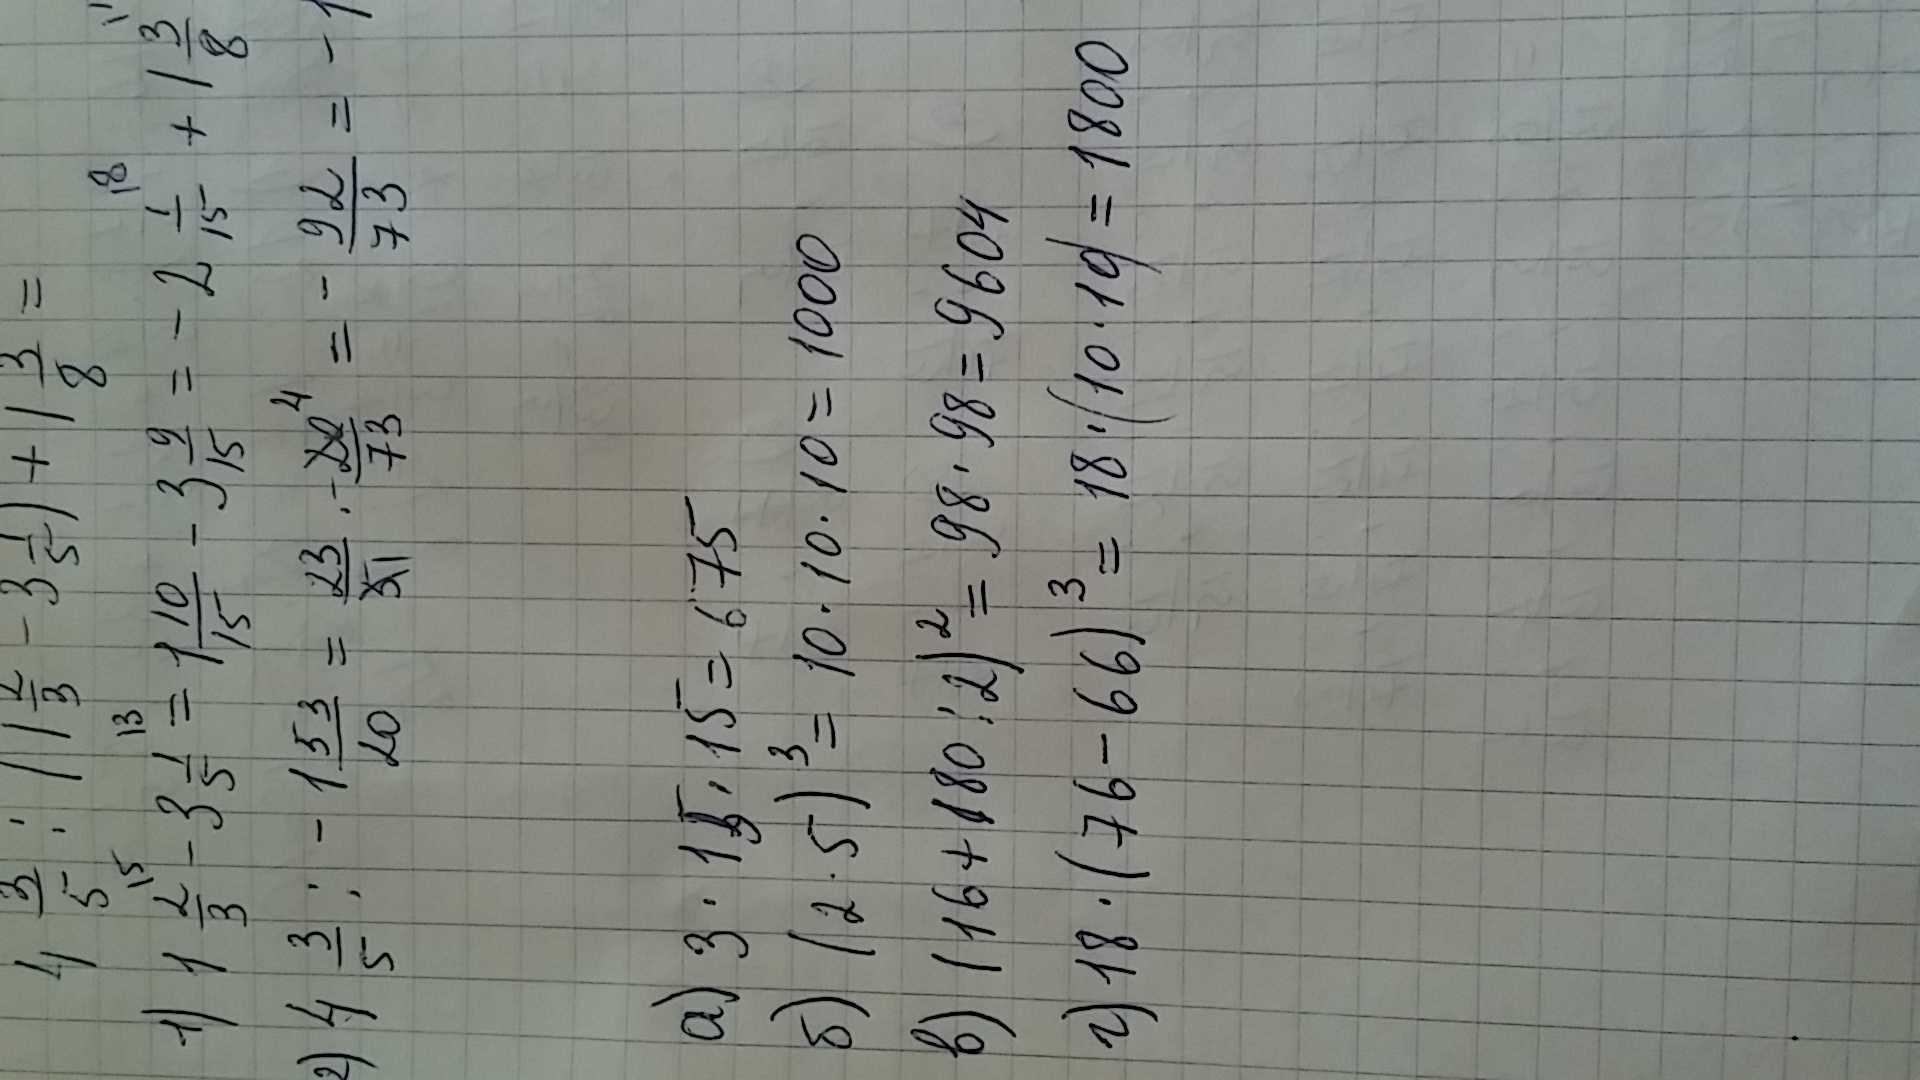 4 3/5 : (1 2/3 - 3 1/5) + 1 3/8 =
1) 1 2/3 ¹⁵ - 3 1/5 ¹³ = 1 10/15 - 3 9/15 = - 2 1/15 ¹⁸ + 1 3/8
2) 4 3/5 : - 1 53/20 = 23/5 1 · - 20/73 4 = - 92/73 = - 1
а) 3 · 15 · 15 = 675
б) (2 · 5)³ = 10 · 10 · 10 = 1000
в) (16 + 180 : 2)² = 98 · 98 = 9604
г) 18 · (76 - 66)³ = 18 · (10 · 10) = 1800